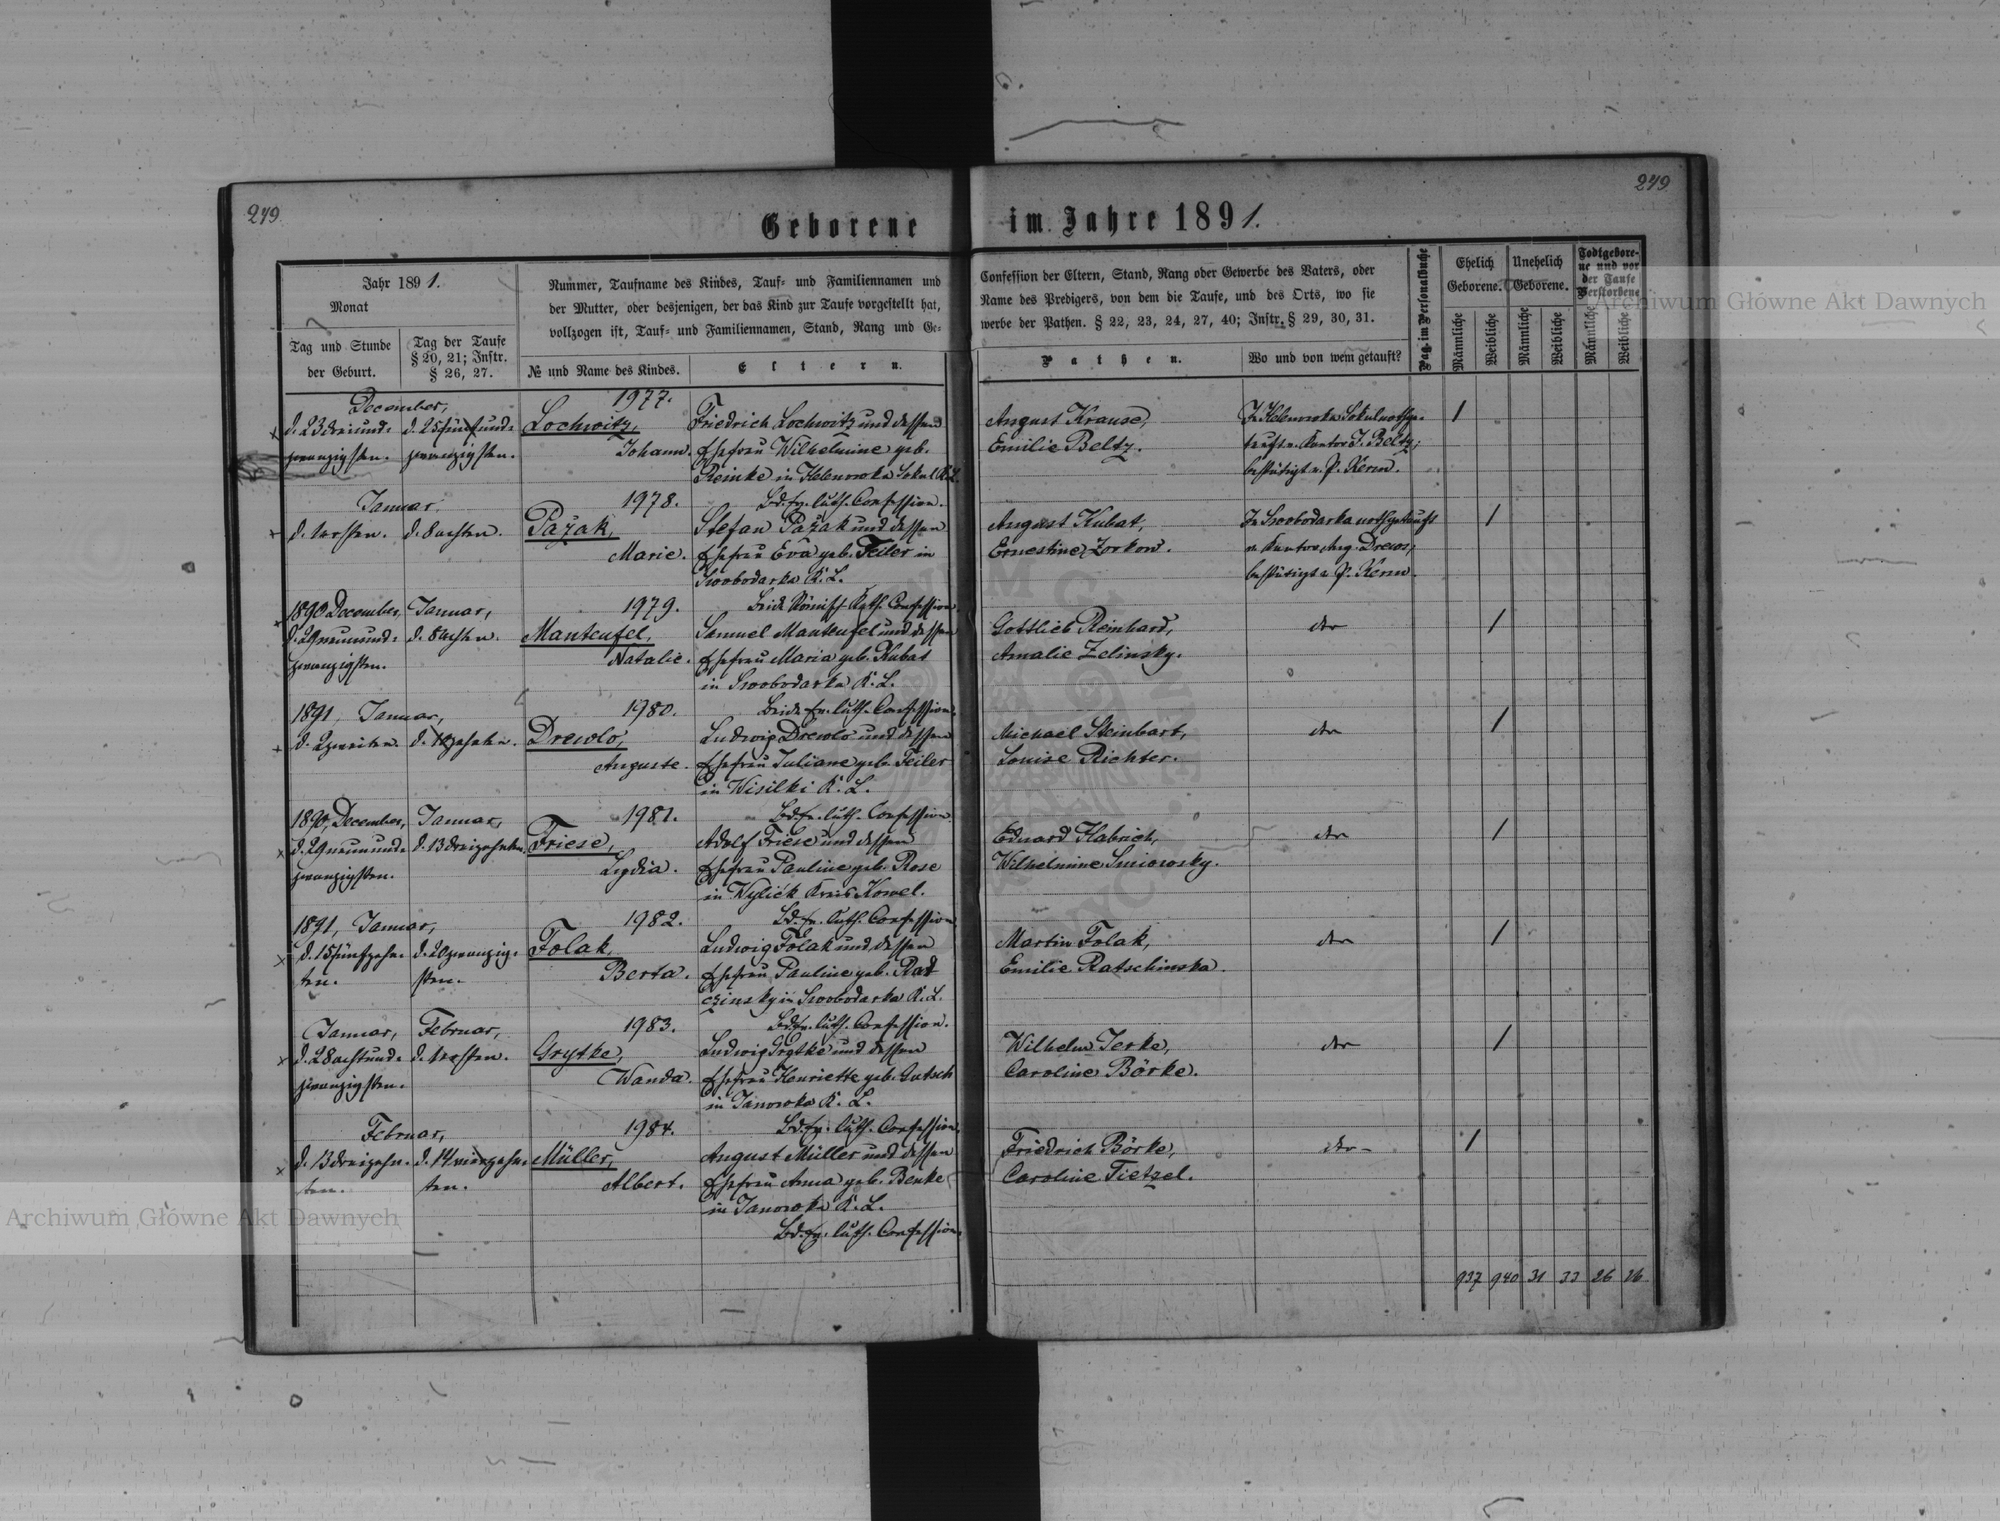 249.
249
Geborene im Jahre 1891.
Jahr 1891.
Monat
Tag und Stunde
der Geburt.
Tag der Taufe
§ 20, 21; Instr.
§ 26, 27.
Nummer, Taufname des Kindes, Tauf- und Familiennamen und
der Mutter, oder desjenigen, der das Kind zur Taufe vorgestellt hat,
vollzogen ist, Tauf- und Familiennamen, Stand, Rang und Ge-
№ und Name des Kindes.
Eltern.
Confession der Eltern, Stand, Rang oder Gewerbe des Vaters, oder
Name des Predigers, von dem die Taufe, und des Orts, wo sie
werbe der Pathen. § 22, 23, 24, 27, 40; Instr. § 29, 30, 31.
Pathen.
Wo und von wem getauft?
Pag. im Personalbuche
Ehelich
Geborene.
Unehelich
Geborene.
Todtgebore-
ne und vor
der Taufe
Verstorbene
Männliche
Weibliche
Männliche
Weibliche
Männliche
Weibliche
December,
d. 23 dreiund-
zwanzigsten.
d. 25 fünfund-
zwanzigsten.
1977.
Lochwitz,
Johann.
Friedrich Lochwitz und dessen
Ehefrau Wilhelmine geb.
Reinke in Helenowka Sokul K. L.
Bd. ev. luth. Confession.
August Krause,
Emilie Beltz.
In Helenowka Sokul nothge-
tauft v. Kantor J. Beltz;
bestätigt v. P. Kerm.
1
Januar,
d. 1 ersten.
d. 8 achten.
1978.
Pažak,
Marie.
Stefan Pažak und dessen
Ehefrau Eva geb. Feiler in
Swobodarka K. L.
Beide Römisch Kath. Confession
August Kubat,
Ernestine Zorkow.
In Swobodarka nothgetauft
v. Kantor Aug. Drews,
bestätigt v. P. Kerm.
1
1890 December,
d. 29 neunund-
zwanzigsten.
Januar,
d. 8 achten.
1979.
Manteufel,
Natalie.
Samuel Manteufel und dessen
Ehefrau Maria geb. Kubat
in Swobodarka K. L.
Beide ev. luth. Confession.
Gottlieb Reinhard,
Amalie Zelinsky.
der
1
1891, Januar,
d. 2 zweiten.
d. 10 zehnten.
1980.
Drewlo,
Auguste.
Ludwig Drewlo und dessen
Ehefrau Juliane geb. Feiler
in Wisilki K. L.
Bd. ev. luth. Confession.
Michael Steinbart,
Louise Richter.
der
1
1890, December,
d. 29 neunund-
zwanzigsten.
Januar,
d. 13 dreizehnten.
1981.
Friese,
Lydia.
Adolf Friese und dessen
Ehefrau Pauline geb. Rose
in Wylick Kreis Kowel.
Bd. ev. luth. Confession
Eduard Habrich,
Wilhelmine Smiowsky.
der
1
1891, Januar,
d. 15 fünfzehn-
ten.
d. 20 zwanzig-
sten.
1982.
Folak,
Berta.
Ludwig Folak und dessen
Ehefrau Pauline geb. Rad
czinsky in Swobodarka K. L.
Bd. ev. luth. Confession.
Martin Folak,
Emilie Ratschinska.
der
1
Januar,
d. 28 achtund-
zwanzigsten.
Februar,
d. 1 ersten.
1983.
Grytke,
Wanda.
Ludwig Grytke und dessen
Ehefrau Henriette geb. Gutsch
in Janowka K. L.
Bd. ev. luth. Confession.
Wilhelm Jerke,
Caroline Börke.
der
1
Februar,
d. 13 dreizehn-
ten.
d. 14 vierzehn-
ten.
1984.
Müller,
Albert.
August Müller und dessen
Ehefrau Anna geb. Benke
in Janowka K. L.
Bd. ev. luth. Confession.
Friedrich Börke,
Caroline Tietzel.
der
1
937 940 31 33 26 26
Archiwum Główne Akt Dawnych
Archiwum Główne Akt Dawnych